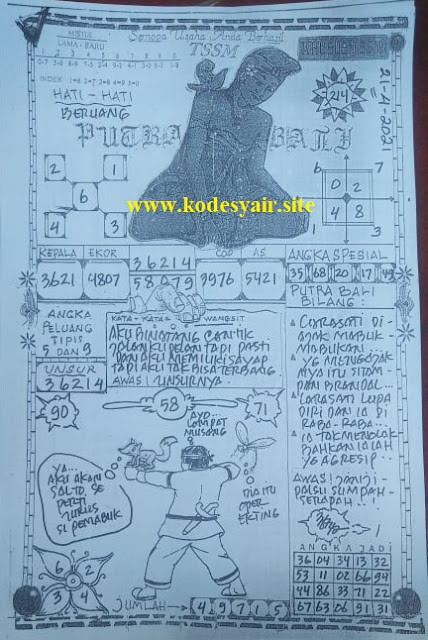 MISTIK
LAMA - BARU
Semoga Usaha Anda Berhasil
TSSM
INDEX
HATI - HATI
BERUANG
PUTRA BALI
214
21-4-2021
2 1
6
4 3
6 7
0 2
4 8
1 3
www.kodesyair.site
KEPALA EKOR
3621 4807
36214
58079
COD AS
3976 5421
ANGKA SPESIAL
35 68 20 17 49
PUTRA BALI
BILANG :
ANGKA
PELUANG
TIPIS
5 DAN 9
UNSUR
36214
KATA - KATA WANGSIT
AKU BINATANG CANTIK
JALANKU PELAN TAPI PASTI
DAN AKU MEMILIKI SAYAP
TAPI AKU TAK BISA TERBANG
AWAS! UNSURNYA.
LARASATI DI-
AJAK MABUK-
MABUKAN..
YG MENGAJAK
NYA ITU SITOM-
DAN BRANDAL...
LARASATI LUPA
DIRI DAN IA DI
RABA-RABA...
IA TAK MENOLAK
BAHKAN IALAH
YG AGRESIP..
AWAS! JANJI-
PALSU SUMPAH-
SERAPAH..!
90
58
71
AYO...
LOMPAT
MUSANG
YA...
AKU AKAN
SALTO, SE
PERTI
JURUS
SI PEMABUK
DIA ITU
OPER
EKTING
6 2
3 4
JUMLAH → 4 9 7 1 5
ANGKA JADI
36 04 34 13 32
53 11 02 66 94
44 86 33 71 22
67 63 06 91 31